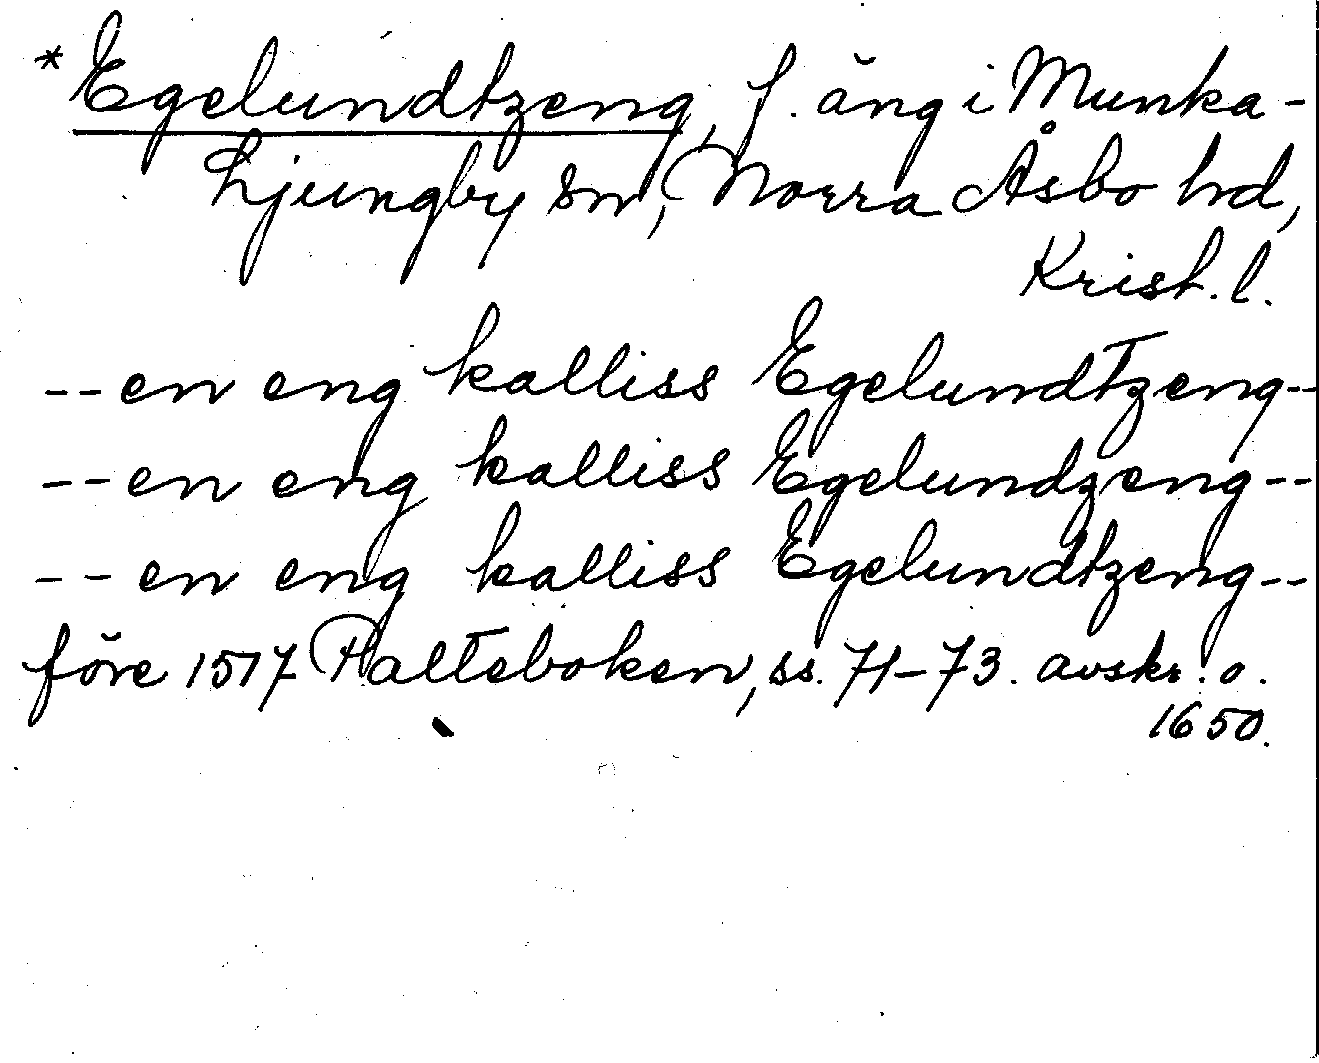 *Egelundtzeng, f. äng i Munka-
Ljungby sn, Norra Åsbo hd,
Krist. l.
--en eng kalliss Egelundtzeng--
--en eng kalliss Egelundzeng--
--en eng kalliss Egelundtzeng--
före 1517 Palteboken, ss. 71-73. avskr. o.
1650.